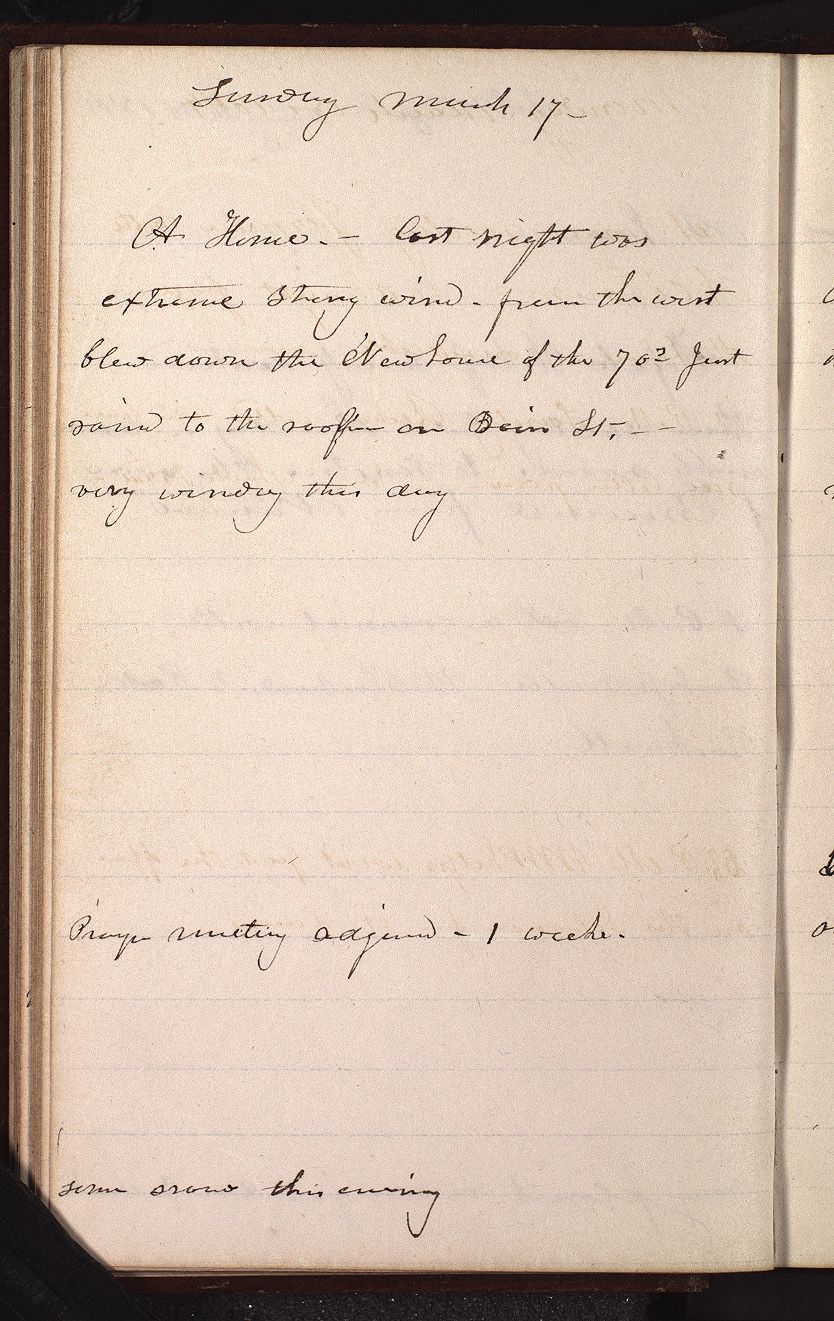 Sunday March 17
At Home. — Last night was
extreme strong wind - from the west
blew down the New house of the 70s Just
raised to the roof on St. —
very windy this day
Prayer meeting adjourned - 1 week.
some snow this evening